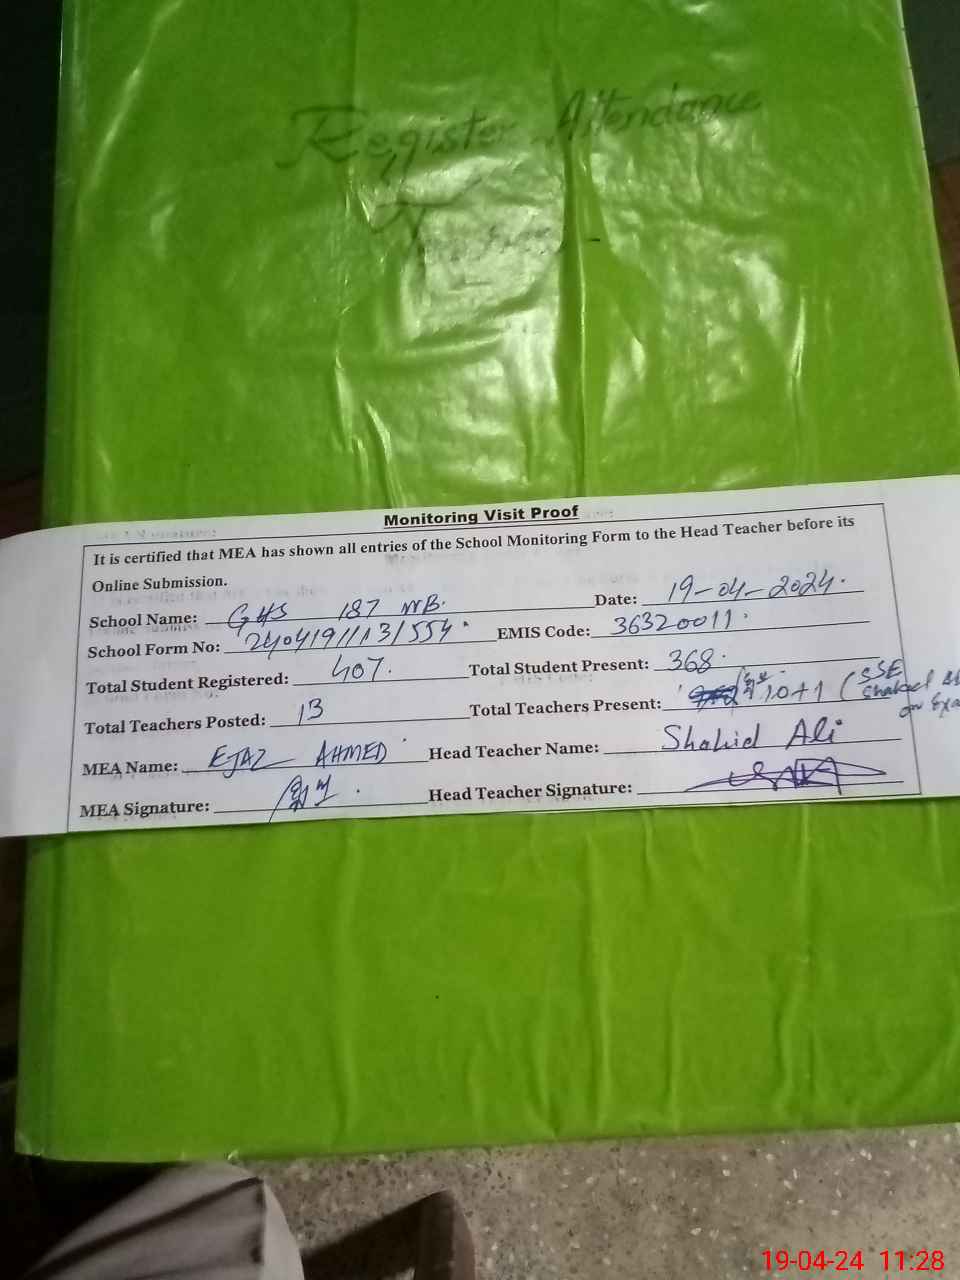 Register Attendance
Teachers
Monitoring Visit Proof
It is certified that MEA has shown all entries of the School Monitoring Form to the Head Teacher before its
Online Submission.
School Name: GHS 187 WB. Date: 19-04-2024.
School Form No: EMIS Code: 36320011.
Total Student Registered: 407. Total Student Present: 368.
Total Teachers Posted: 13 Total Teachers Present: 10+1 (SSE
on
MEA Name: EJAZ AHMED Head Teacher Name: Shahid Ali
MEA Signature: Head Teacher Signature:
19-04-24 11:28